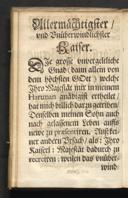 Allermächtigster /
und Unüberwindlichster
Kaiser.
Die grosse unvergleichliche
Gnad / dann allein von
dem höchsten GOtt / welche
Ihro Majestät mir in meinem
Haruman gnädigist ertheilet /
hat mich billich darzu getriben
Denselben meinen Sohn auch
nach gelassenem Leben aufs
newe zu præsentiren.
andere Ursach / als: Ihro
Kaiserl: Majestät dadurch zu
weilen das unüber-
wind-